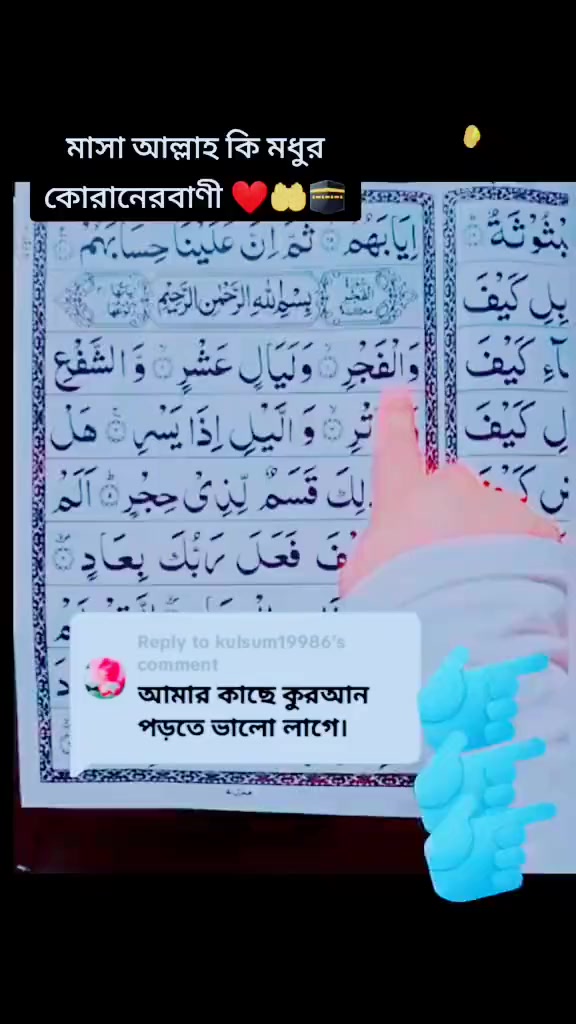 মাসা আল্লাহ কি মধুর
কোরানেরবাণী ❤️🤲🕋
اِيَابَهُمْ ثُمَّ اِنَّ عَلَيْنَا حِسَابَهُمْ
بِسْمِ اللهِ الرَّحْمٰنِ الرَّحِيْمِ
وَالْفَجْرِ وَلَيَالٍ عَشْرٍ وَّالشَّفْعِ
وَالَّيْلِ اِذَا يَسْرِ هَلْ
قَسَمٌ لِّذِيْ حِجْرٍ اَلَمْ
فَعَلَ رَبُّكَ بِعَادٍ
بْثُوْثَةٌ
كَيْفَ
كَيْفَ
كَيْفَ
Reply to kulsum19986's
comment
আমার কাছে কুরআন
পড়তে ভালো লাগে।